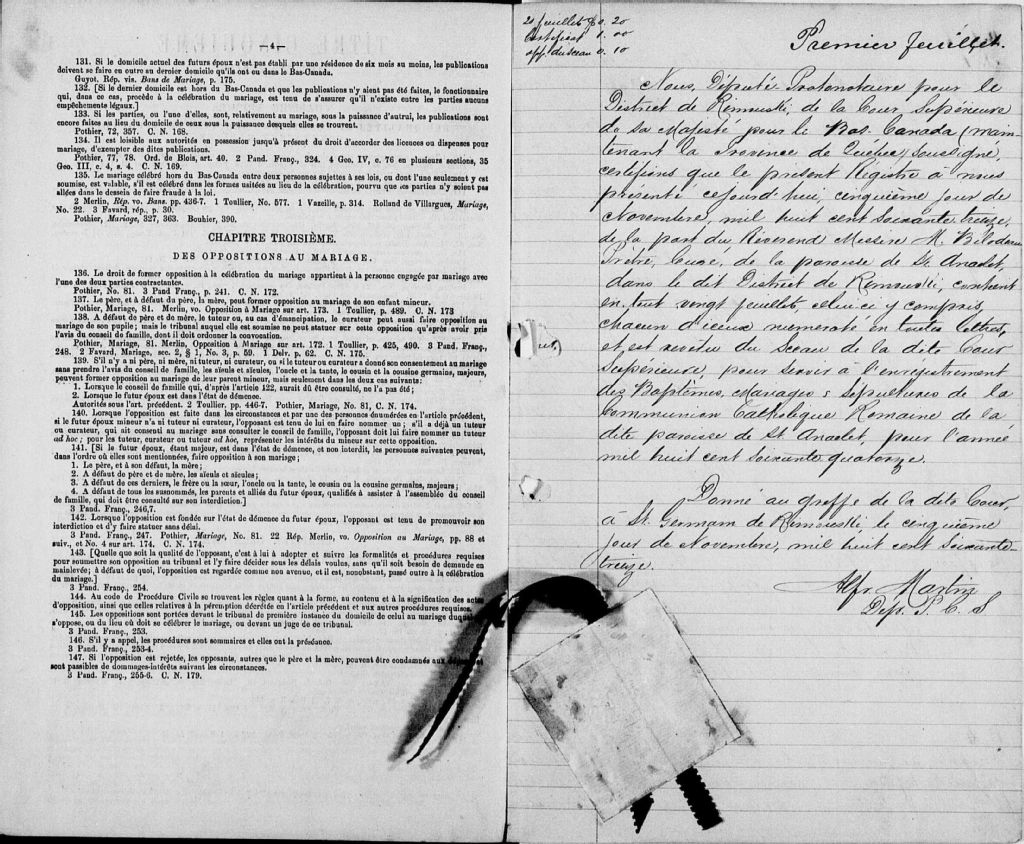 —4—
131. Si le domicile actuel des futurs époux n'est pas établi par une résidence de six mois au moins, les publications
doivent se faire en outre au dernier domicile qu'ils ont eu dans le Bas-Canada.
Guyot. Rép. vis. Bans de Mariage, p. 175.
132. [Si le dernier domicile est hors du Bas-Canada et que les publications n'y aient pas été faites, le fonctionnaire
qui, dans ce cas, procède à la célébration du mariage, est tenu de s'assurer qu'il n'existe entre les parties aucuns
empêchements légaux.]
133. Si les parties, ou l'une d'elles, sont, relativement au mariage, sous la puissance d'autrui, les publications sont
encore faites au lieu du domicile de ceux sous la puissance desquels elles se trouvent.
Pothier, 72, 357. C. N. 168.
134. Il est loisible aux autorités en possession jusqu'à présent du droit d'accorder des licences ou dispenses pour
mariage, d'exempter des dites publications.
Pothier, 77, 78. Ord. de Blois, art. 40. 2 Pand. Franç., 324. 4 Geo. IV, c. 76 en plusieurs sections, 35
Geo. III, c. 4, s. 4. C. N. 169.
135. Le mariage célébré hors du Bas-Canada entre deux personnes sujettes à ses lois, ou dont l'une seulement y est
soumise, est valable, s'il est célébré dans les formes usitées au lieu de la célébration, pourvu que ces parties n'y soient pas
allées dans le dessein de faire fraude à la loi.
2 Merlin, Rép. vo. Bans. pp. 436-7. 1 Toullier, No. 577. 1 Vazeille, p. 314. Rolland de Villargues, Mariage,
No. 22. 3 Favard, rép., p. 30.
Pothier, Mariage, 327, 363. Bouhier, 390.
CHAPITRE TROISIÈME.
DES OPPOSITIONS AU MARIAGE.
136. Le droit de former opposition à la célébration du mariage appartient à la personne engagée par mariage avec
l'une des deux parties contractantes.
Pothier, No. 81. 3 Pand Franç., p. 241. C. N. 172.
137. Le père, et à défaut du père, la mère, peut former opposition au mariage de son enfant mineur.
Pothier, Mariage, 81. Merlin, vo. Opposition à Mariage sur art. 173. 1 Toullier, p. 489. C. N. 173
138. A défaut de père et de mère, le tuteur ou, au cas d'émancipation, le curateur peut aussi faire opposition au
mariage de son pupile; mais le tribunal auquel elle est soumise ne peut statuer sur cette opposition qu'après avoir pris
l'avis du conseil de famille, dont il doit ordonner la convocation.
Pothier, Mariage, 81. Merlin, Opposition à Mariage sur art. 172. 1 Toullier, p. 425, 490. 3 Pand. Franç.,
248. 2 Favard, Mariage, sec. 2, § 1, No. 3, p. 59. 1 Delv. p. 62. C. N. 175.
139. S'il n'y a ni père, ni mère, ni tuteur, ni curateur, ou si le tuteur ou curateur a donné son consentement au mariage
sans prendre l'avis du conseil de famille, les aïeuls et aïeules, l'oncle et la tante, le cousin et la cousine germains, majeurs,
peuvent former opposition au mariage de leur parent mineur, mais seulement dans les deux cas suivants:
1. Lorsque le conseil de famille qui, d'après l'article 122, aurait dû être consulté, ne l'a pas été;
2. Lorsque le futur époux est dans l'état de démence.
Autorités sous l'art. précédent. 2 Toullier, pp. 446-7. Pothier, Mariage, No. 81, C. N. 174.
140. Lorsque l'opposition est faite dans les circonstances et par une des personnes énumérées en l'article précédent,
si le futur époux mineur n'a ni tuteur ni curateur, l'opposant est tenu de lui en faire nommer un; s'il a déjà un tuteur
ou curateur, qui ait consenti au mariage sans consulter le conseil de famille, l'opposant doit lui faire nommer un tuteur
ad hoc; pour les tuteur, curateur ou tuteur ad hoc, représenter les intérêts du mineur sur cette opposition.
141. [Si le futur époux, étant majeur, est dans l'état de démence, et non interdit, les personnes suivantes peuvent,
dans l'ordre où elles sont mentionnées, faire opposition à son mariage;
1. Le père, et à son défaut, la mère;
2. A défaut de père et de mère, les aïeuls et aïeules;
3. A défaut de ces derniers, le frère ou la sœur, l'oncle ou la tante, le cousin ou la cousine germains, majeurs;
4. A défaut de tous les susnommés, les parents et alliés du futur époux, qualifiés à assister à l'assemblée du conseil
de famille, qui doit être consulté sur son interdiction.]
3 Pand. Franç., 246,7.
142. Lorsque l'opposition est fondée sur l'état de démence du futur époux, l'opposant est tenu de promouvoir son
interdiction et d'y faire statuer sans délai.
3 Pand. Franç., 247. Pothier, Mariage, No. 81. 22 Rép. Merlin, vo. Opposition au Mariage, pp. 88 et
suiv., et No. 4 sur art. 174. C. N. 174.
143. [Quelle que soit la qualité de l'opposant, c'est à lui à adopter et suivre les formalités et procédures requises
pour soumettre son opposition au tribunal et l'y faire décider sous les délais voulus, sans qu'il soit besoin de demande en
mainlevée; à défaut de quoi, l'opposition est regardée comme non avenue, et il est, nonobstant, passé outre à la célébration
du mariage.]
3 Pand. Franç., 254.
144. Au code de Procédure Civile se trouvent les règles quant à la forme, au contenu et à la signification des actes
d'opposition, ainsi que celles relatives à la péremption décrétée en l'article précédent et aux autres procédures requises.
145. Les oppositions sont portées devant le tribunal de première instance du domicile de celui au mariage duquel
s'oppose, ou du lieu où doit se célébrer le mariage, ou devant un juge de ce tribunal.
3 Pand. Franç., 253.
146. S'il y a appel, les procédures sont sommaires et elles ont la préséance.
3 Pand. Franç., 253-4.
147. Si l'opposition est rejetée, les opposants, autres que le père et la mère, peuvent être condamnés aux dépens et
sont passibles de dommages-intérêts suivant les circonstances.
3 Pand. Franç., 255-6. C. N. 179.
20 feuillets 0. 20
Certificat 1. 00
app. du sceau 0. 10
Premier feuillet.
Nous, Député Protonotaire pour le
District de Rimouski, de la Cour Supérieure
de Sa Majesté pour le Bas-Canada (main-
tenant la Province de Québec) soussigné,
certifions que le présent Registre a nous
présenté cejourd'hui, cinquième jour de
Novembre, mil huit cent soixante treize,
de la part du Révérend Messire M. Bilodeau
Prêtre, Curé, de la paroisse de St. Anaclet,
dans le dit District de Rimouski, contient
en tout vingt feuillets celui-ci y compris,
chacun d'iceux numeroté en toutes lettres,
et est revêtu du Sceau de la dite Cour
Supérieure, pour servir à l'enregistrement
des Baptêmes, Mariages & Sépultures de la
Communion Catholique Romaine de la
dite paroisse de St. Anaclet, pour l'année
mil huit cent soixante quatorze.
Donné au greffe de la dite Cour,
à St. Germain de Rimouski, le cinquième
jour de Novembre, mil huit cent soixante-
treize.
Alfr. Martin
Dép. P. C. S